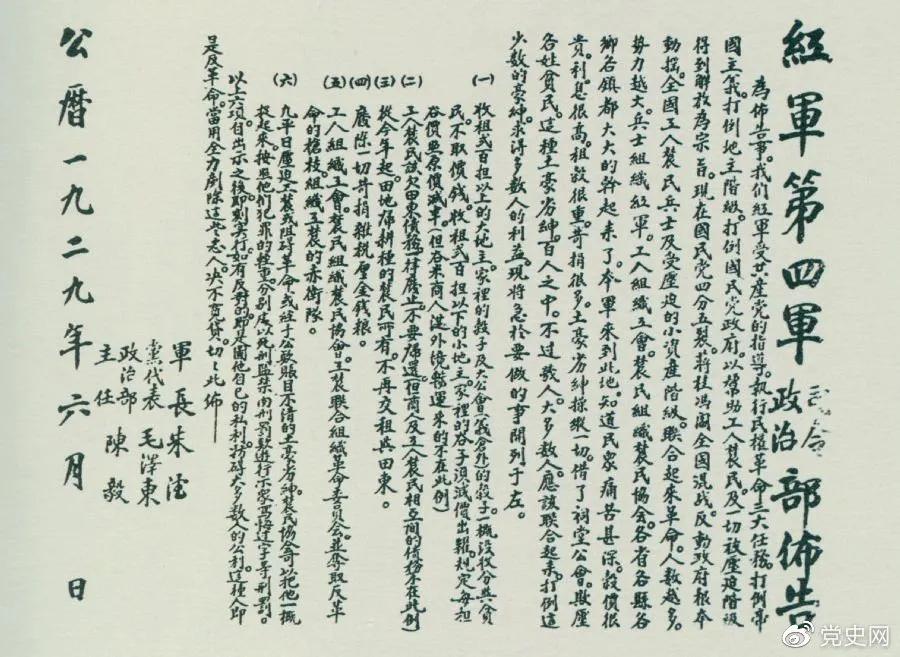 紅軍第四軍司令政治部佈告
為佈告事。我们紅軍受共產党的指導。執行民权革命三大任務。打倒帝
國主義。打倒地主階級。打倒國民党政府。以幫助工人農民。及一切被壓迫階級
得到解放為宗旨。現在國民党四分五裂。蔣桂馮閻全國混战。反動政府根本
動搖。全國工人農民兵士及受壓迫的小資產階級。联合起來革命。人数越多。
势力越大。兵士組織紅軍。工人組織工會。農民組織農民協会。各省各縣各
鄉各鎮都大大的幹起来了。本軍來到此地。知道民衆痛苦甚深。穀價很
貴。利息很高。租穀很重。苛捐很多。土豪劣紳操縱一切。借了祠堂公會。欺壓
各姓貧民。這種土豪劣紳。百人之中。不过数人。大多数人。應該联合起来。打倒這
少数的豪紳。求得多数人的利益。現將急於要做的事開列于左。
(一) 收租弍百担以上的大地主。家裡的穀子及大公會(義倉外)的穀子一概没收分與貧
民。不取價钱。收租弍百担以下的小地主。家裡的谷子須減價出糶。規定每担
谷價照原價減半。(但谷米商人從外境輸運來的不在此例)
(二) 工人農民該欠田東債務一律廢止。不要歸還。(但商人及工人農民相互間的債務不在此例)
(三) 從今年起。田地歸耕種的農民所有。不再交租與田東。
(四) 廢除一切苛捐雜税厘金钱粮。
(五) 工人組織工會。農民組織農民協会。工農联合組織革命委員会。並奪取反革
命的槍枝。組織工農的赤衛隊。
(六) 凡平日壓迫工農或阻碍革命。或經手公款賬目不清的土豪劣紳。農民協会可以把他一概
捉起来。按照他们犯罪的軽重。分别處以死刑監禁肉刑罚款遊行示衆寫悔过字等刑罰。
以上六項自出示之後即刻实行。如有反對的。即是圖他自己的私利。妨碍大多数人的公利。這種人即
是反革命。當用全力剷除這些悪人。决不寛貸。切切此佈
軍長 朱德
黨代表 毛澤東
政治部主任 陳毅
公曆一九二九年六月 日
党史网